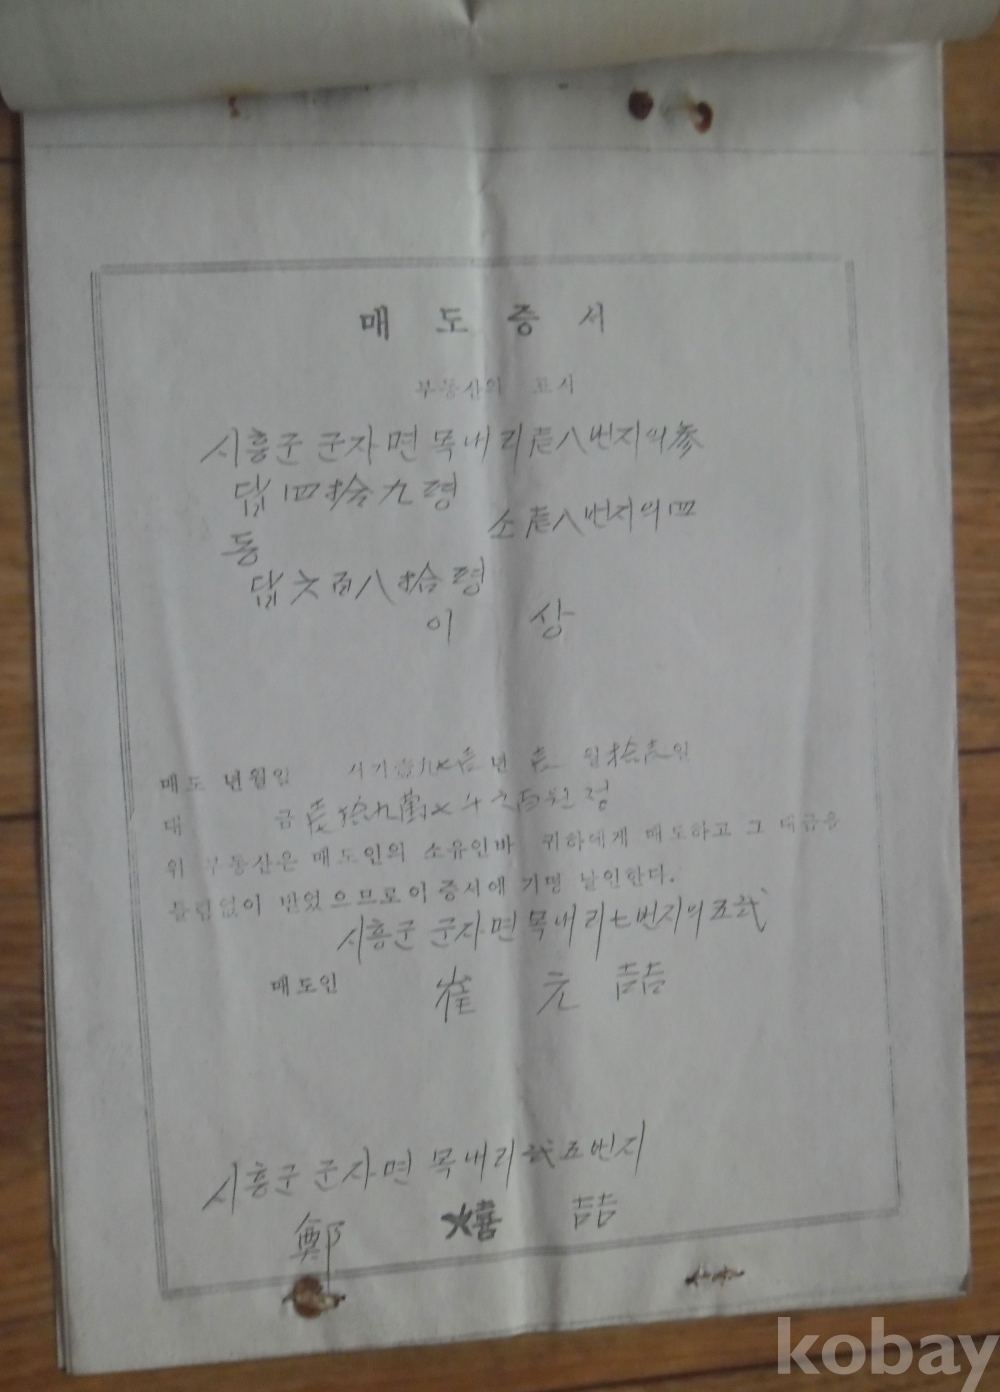 매도증서
부동산의 표시
시흥군 군자면 목내리 壱八번지의 参
답 四拾九평
동 소 壱八번지의 四
답 六百八拾평
이 상
매도 년월일 서기 壹九七 년 壱 일
대 금 壱拾九萬七千六百원정
위 부동산은 매도인의 소유인바 귀하에게 매도하고 그 대금을
틀림없이 받었으므로 이 증서에 기명 날인한다.
시흥군 군자면 목내리 七번지의 五弐
매도인 崔 元 喆
시흥군 군자면 목내리 弐五번지
鄭 熺 喆
kobay